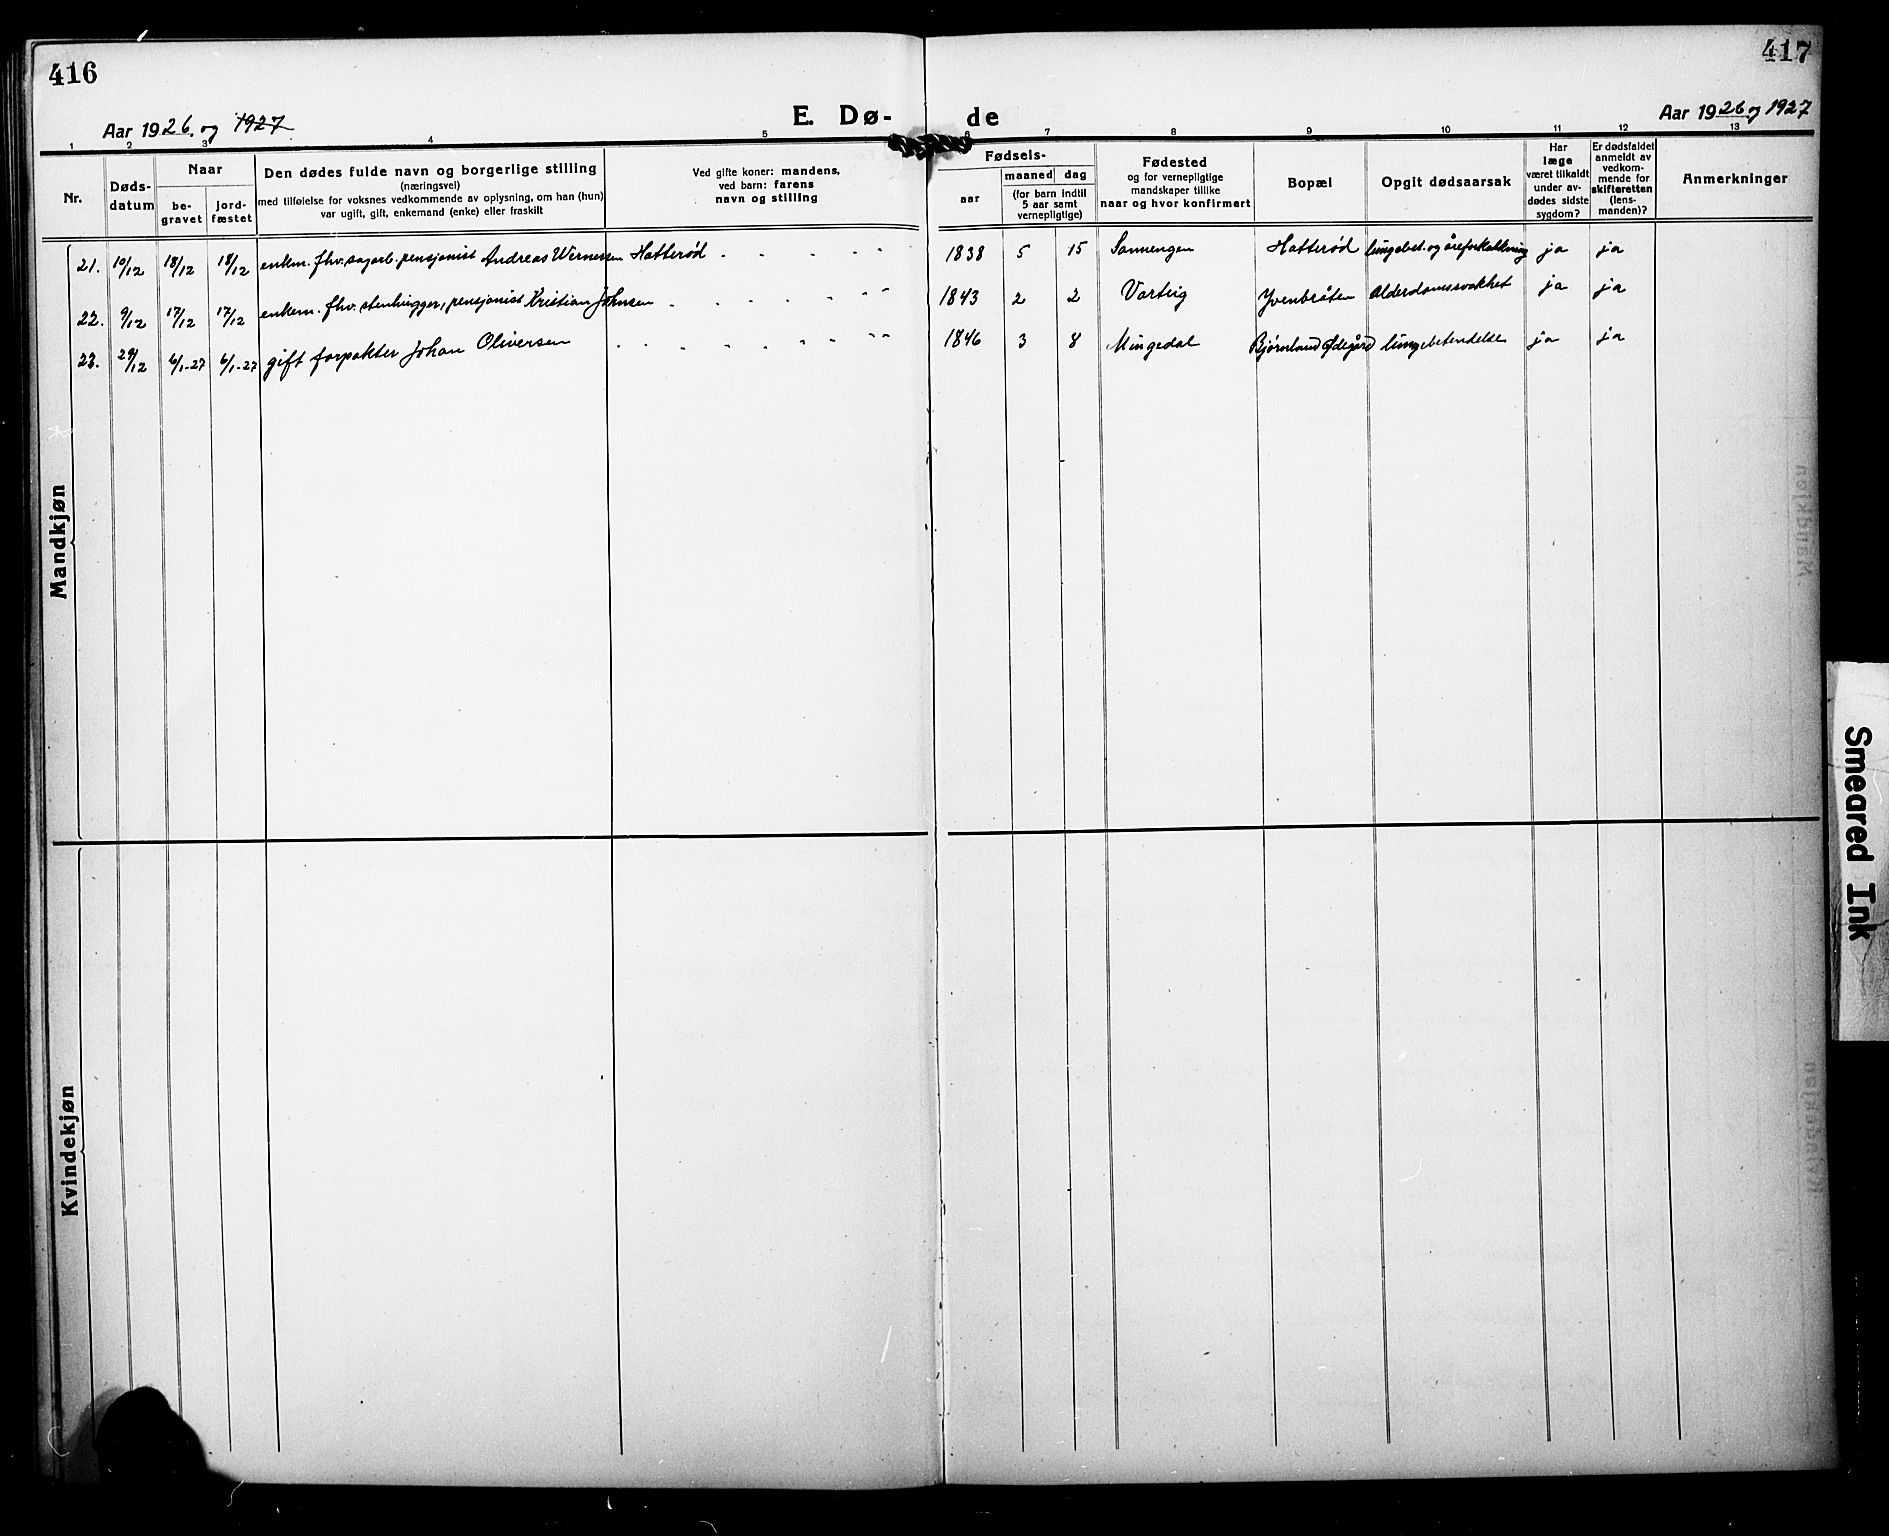 416
417
E. Dø-
de
Aar 1926. og 1927
Aar 1926 og 1927
1 2 3 4 5 6 7 8 9 10 11 12 13
Nr.
Døds-
datum
Naar
be-
gravet
jord-
fæstet
Den dødes fulde navn og borgerlige stilling
(næringsvei)
med tilføielse for voksnes vedkommende av oplysning, om han (hun)
var ugift, gift, enkemand (enke) eller fraskilt
Ved gifte koner: mandens,
ved barn: farens
navn og stilling
Fødsels-
aar
maaned dag
(for barn indtil
5 aar samt
vernepligtige)
Fødested
og for vernepligtige
mandskaper tillike
naar og hvor konfirmert
Bopæl
Opgit dødsaarsak
Har
læge
været tilkaldt
under av-
dødes sidste
sygdom?
Er dødsfaldet
anmeldt av
vedkom-
mende for
skifteretten
(lens-
manden)?
Anmerkninger
Mandkjøn
21. 10/12 18/12 18/12 enkem. fhv. sagarb. pensjonist Andreas Wernersen Hatterød 1838 5 15 Sannengen Hatterød lungebet. og åreforkalkning ja ja
22. 9/12 17/12 17/12 enkem. fhv. stenhugger, pensjonist Kristian Johnsen 1843 2 2 Varteig Yvenbråten Alderdomssvakhet ja ja
23. 29/12 6/1-27 6/1-27 gift forpakter Johan Oliversen 1846 3 8 Mingedal Bjørnland Ødegård lungebetendelse ja ja
Kvindekjøn
Smeared Ink